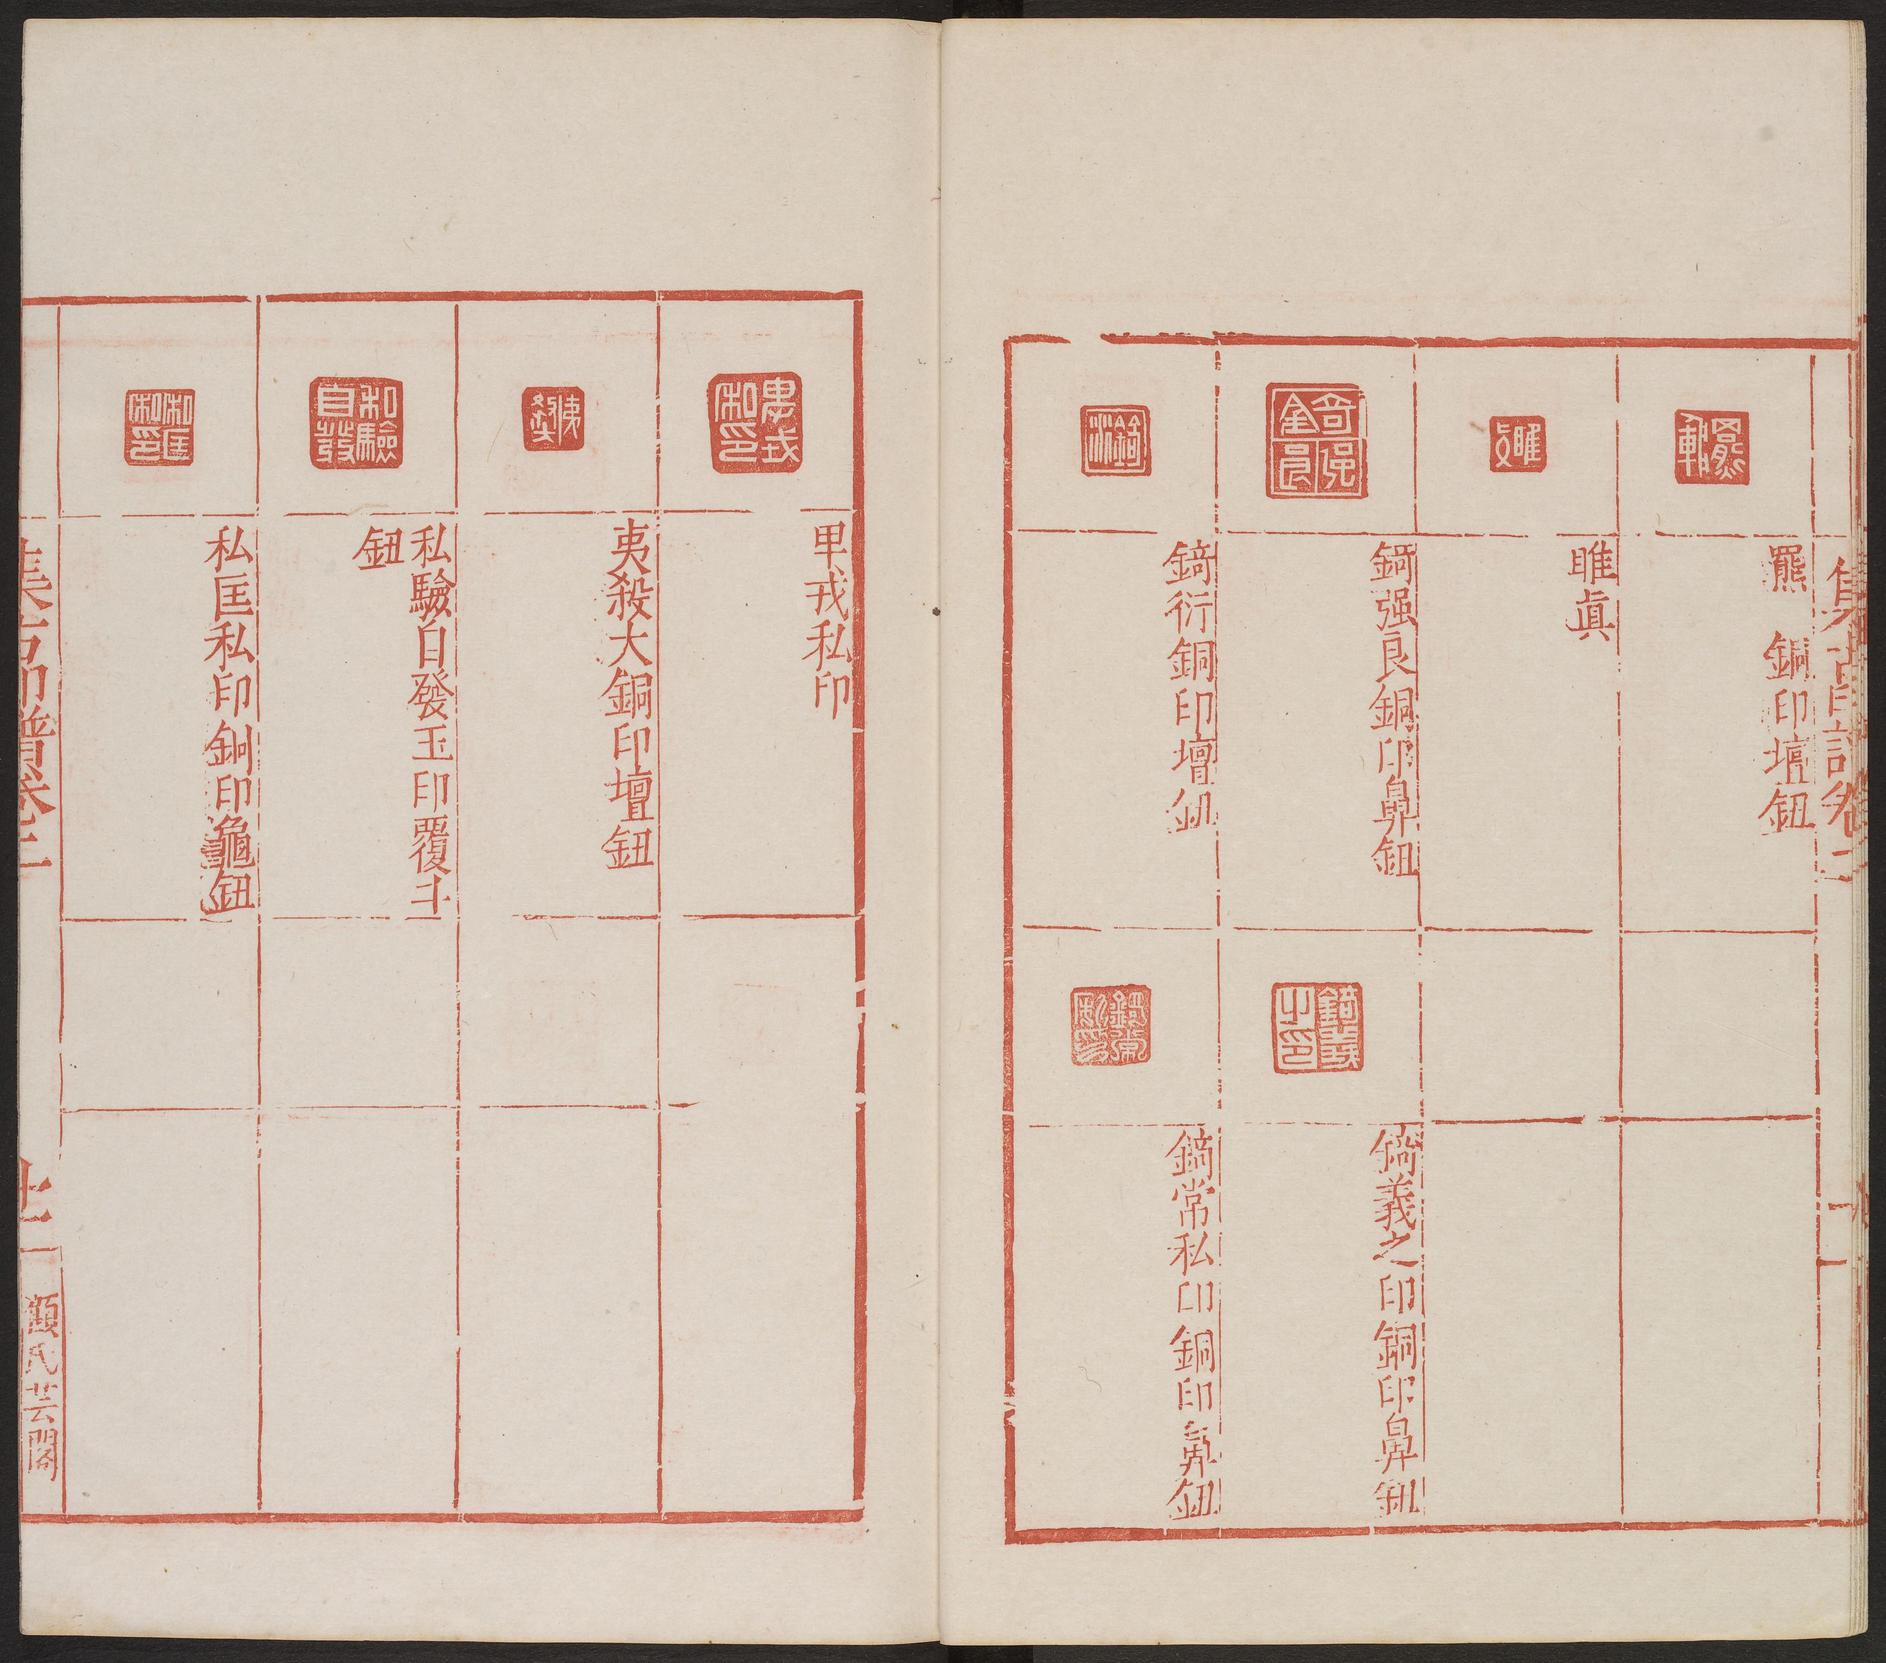 集古印譜卷二
羆 銅印壇鈕
睢真
錡强良銅印鼻鈕
錡義之印銅印鼻鈕
錡衍銅印壇鈕
錡常私印銅印鼻鈕
甲戎私印
夷殺大銅印壇鈕
私驗自發玉印覆斗
鈕
私匡私印銅印龜鈕
集古印譜卷二
顧氏芸閣